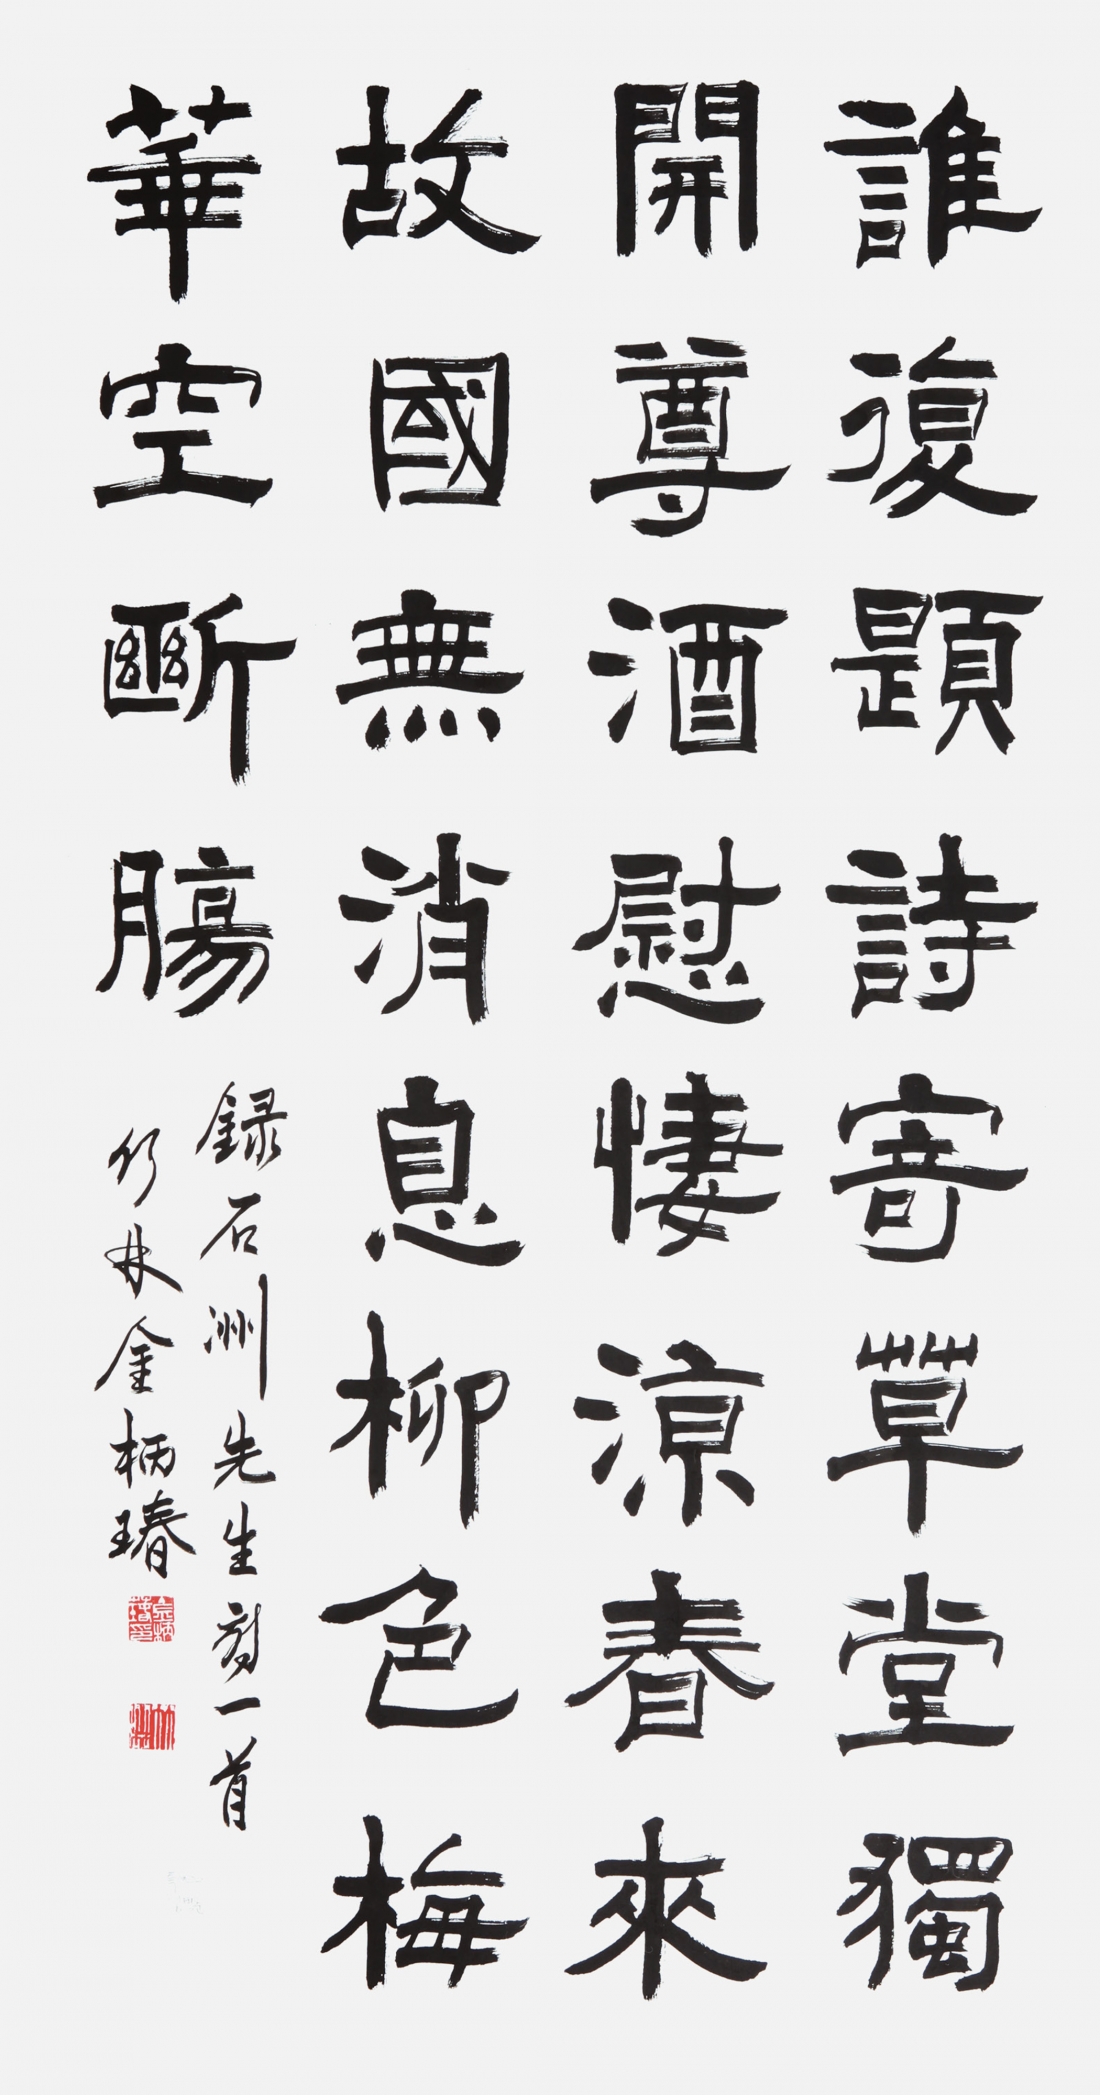 誰復題詩寄草堂獨
開尊酒慰悽涼春來
故國無消息柳色梅
華空斷腸
録石洲先生詩一首
竹林金柄瑃